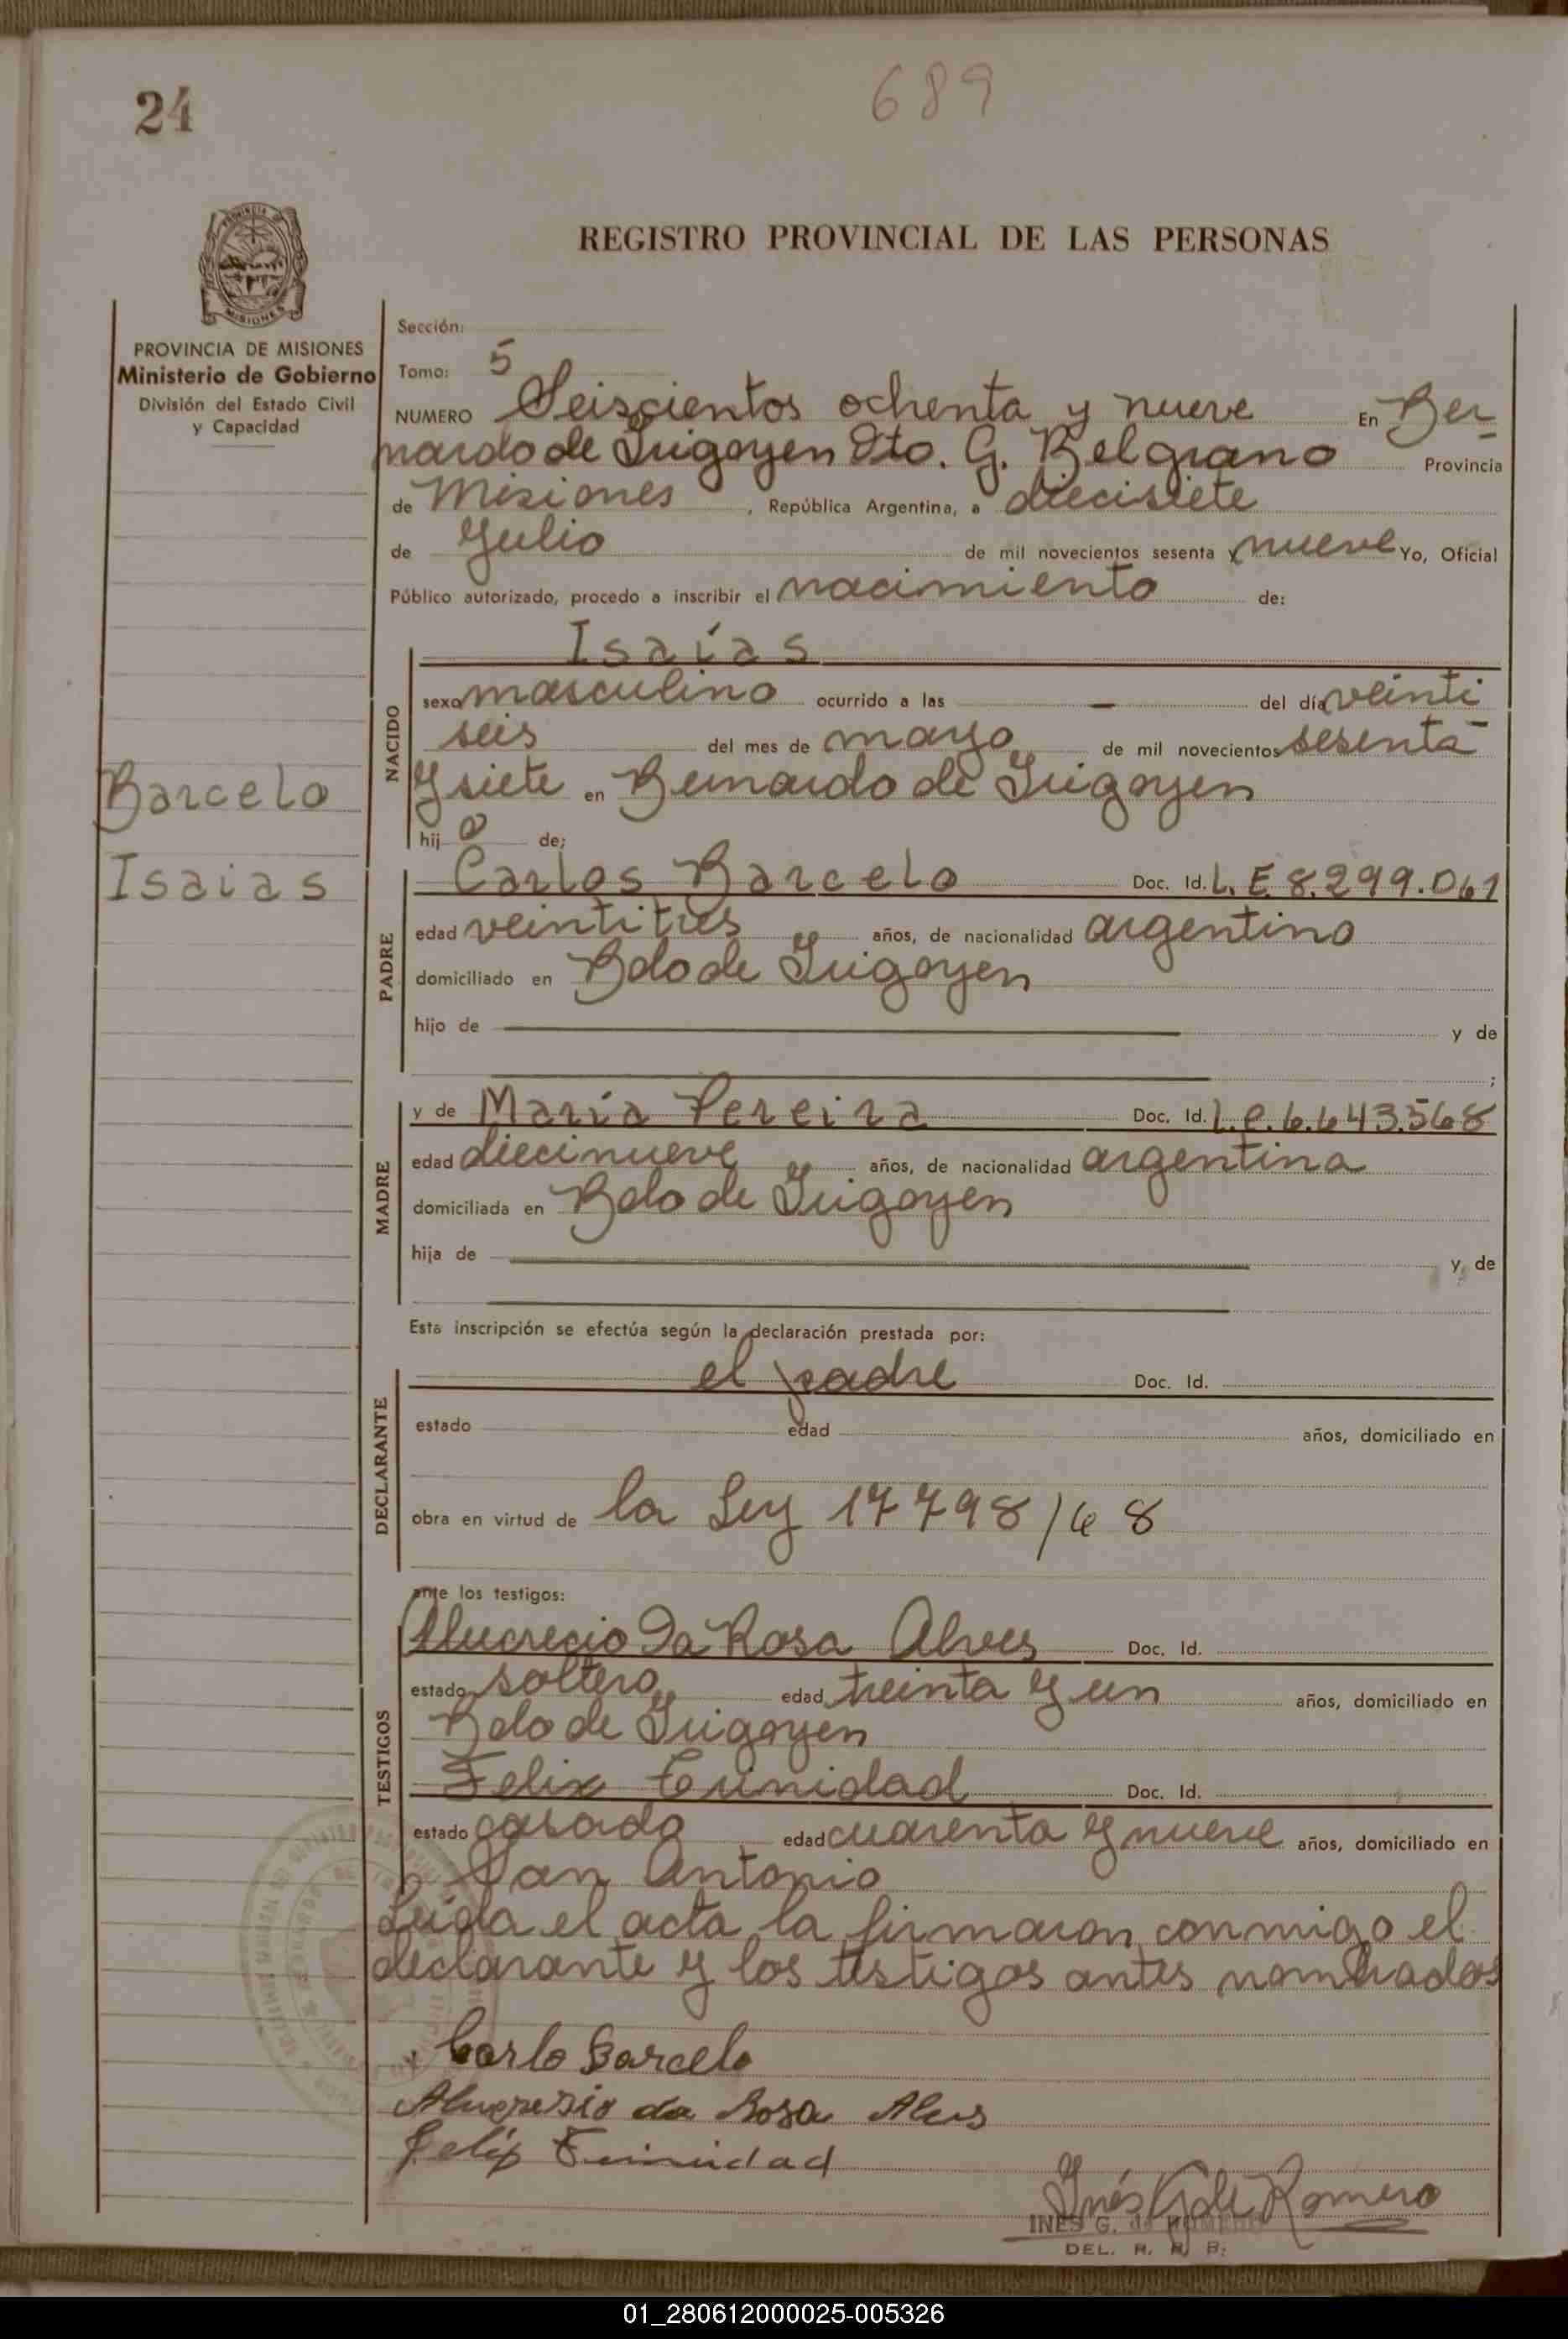 24
689
REGISTRO PROVINCIAL DE LAS PERSONAS
MISIONES
PROVINCIA DE MISIONES
Ministerio de Gobierno
División del Estado Civil
y Capacidad
Barcelo
Isaias
Sección:
Tomo: 5
NUMERO Seiscientos ochenta y nueve En Ber-
nardo de Irigoyen Dto. G. Belgrano Provincia
de Misiones, República Argentina, a diecisiete
de Julio de mil novecientos sesenta y nueve Yo, Oficial
Público autorizado, procedo a inscribir el nacimiento de:
NACIDO
Isaías
sexo masculino ocurrido a las — del día veinti
seis del mes de mayo de mil novecientos sesenta
y siete en Bernardo de Irigoyen
hij o de;
PADRE
Carlos Barcelo Doc. Id. L.E. 8.299.061
edad veintitres años, de nacionalidad argentino
domiciliado en Bdo de Irigoyen
hijo de y de
;
MADRE
y de María Pereira Doc. Id. L.C. 6.643.568
edad diecinueve años, de nacionalidad argentina
domiciliada en Bdo de Irigoyen
hija de y de
Esta inscripción se efectúa según la declaración prestada por:
DECLARANTE
el padre Doc. Id.
estado edad años, domiciliado en
obra en virtud de la Ley 17798/68
ante los testigos:
TESTIGOS
da Rosa Alves Doc. Id.
estado soltero edad treinta y un años, domiciliado en
Bdo de Irigoyen
Felix Trinidad Doc. Id.
estado casado edad cuarenta y nueve años, domiciliado en
San Antonio
Leida el acta la firmaron conmigo el
declarante y los testigos antes nombrados
x Carlo Barcelo
da Rosa Alves
Felix Trinidad
Inés G. de Romero
INES G. de ROMERO
DEL. R. P. B.
01_280612000025-005326